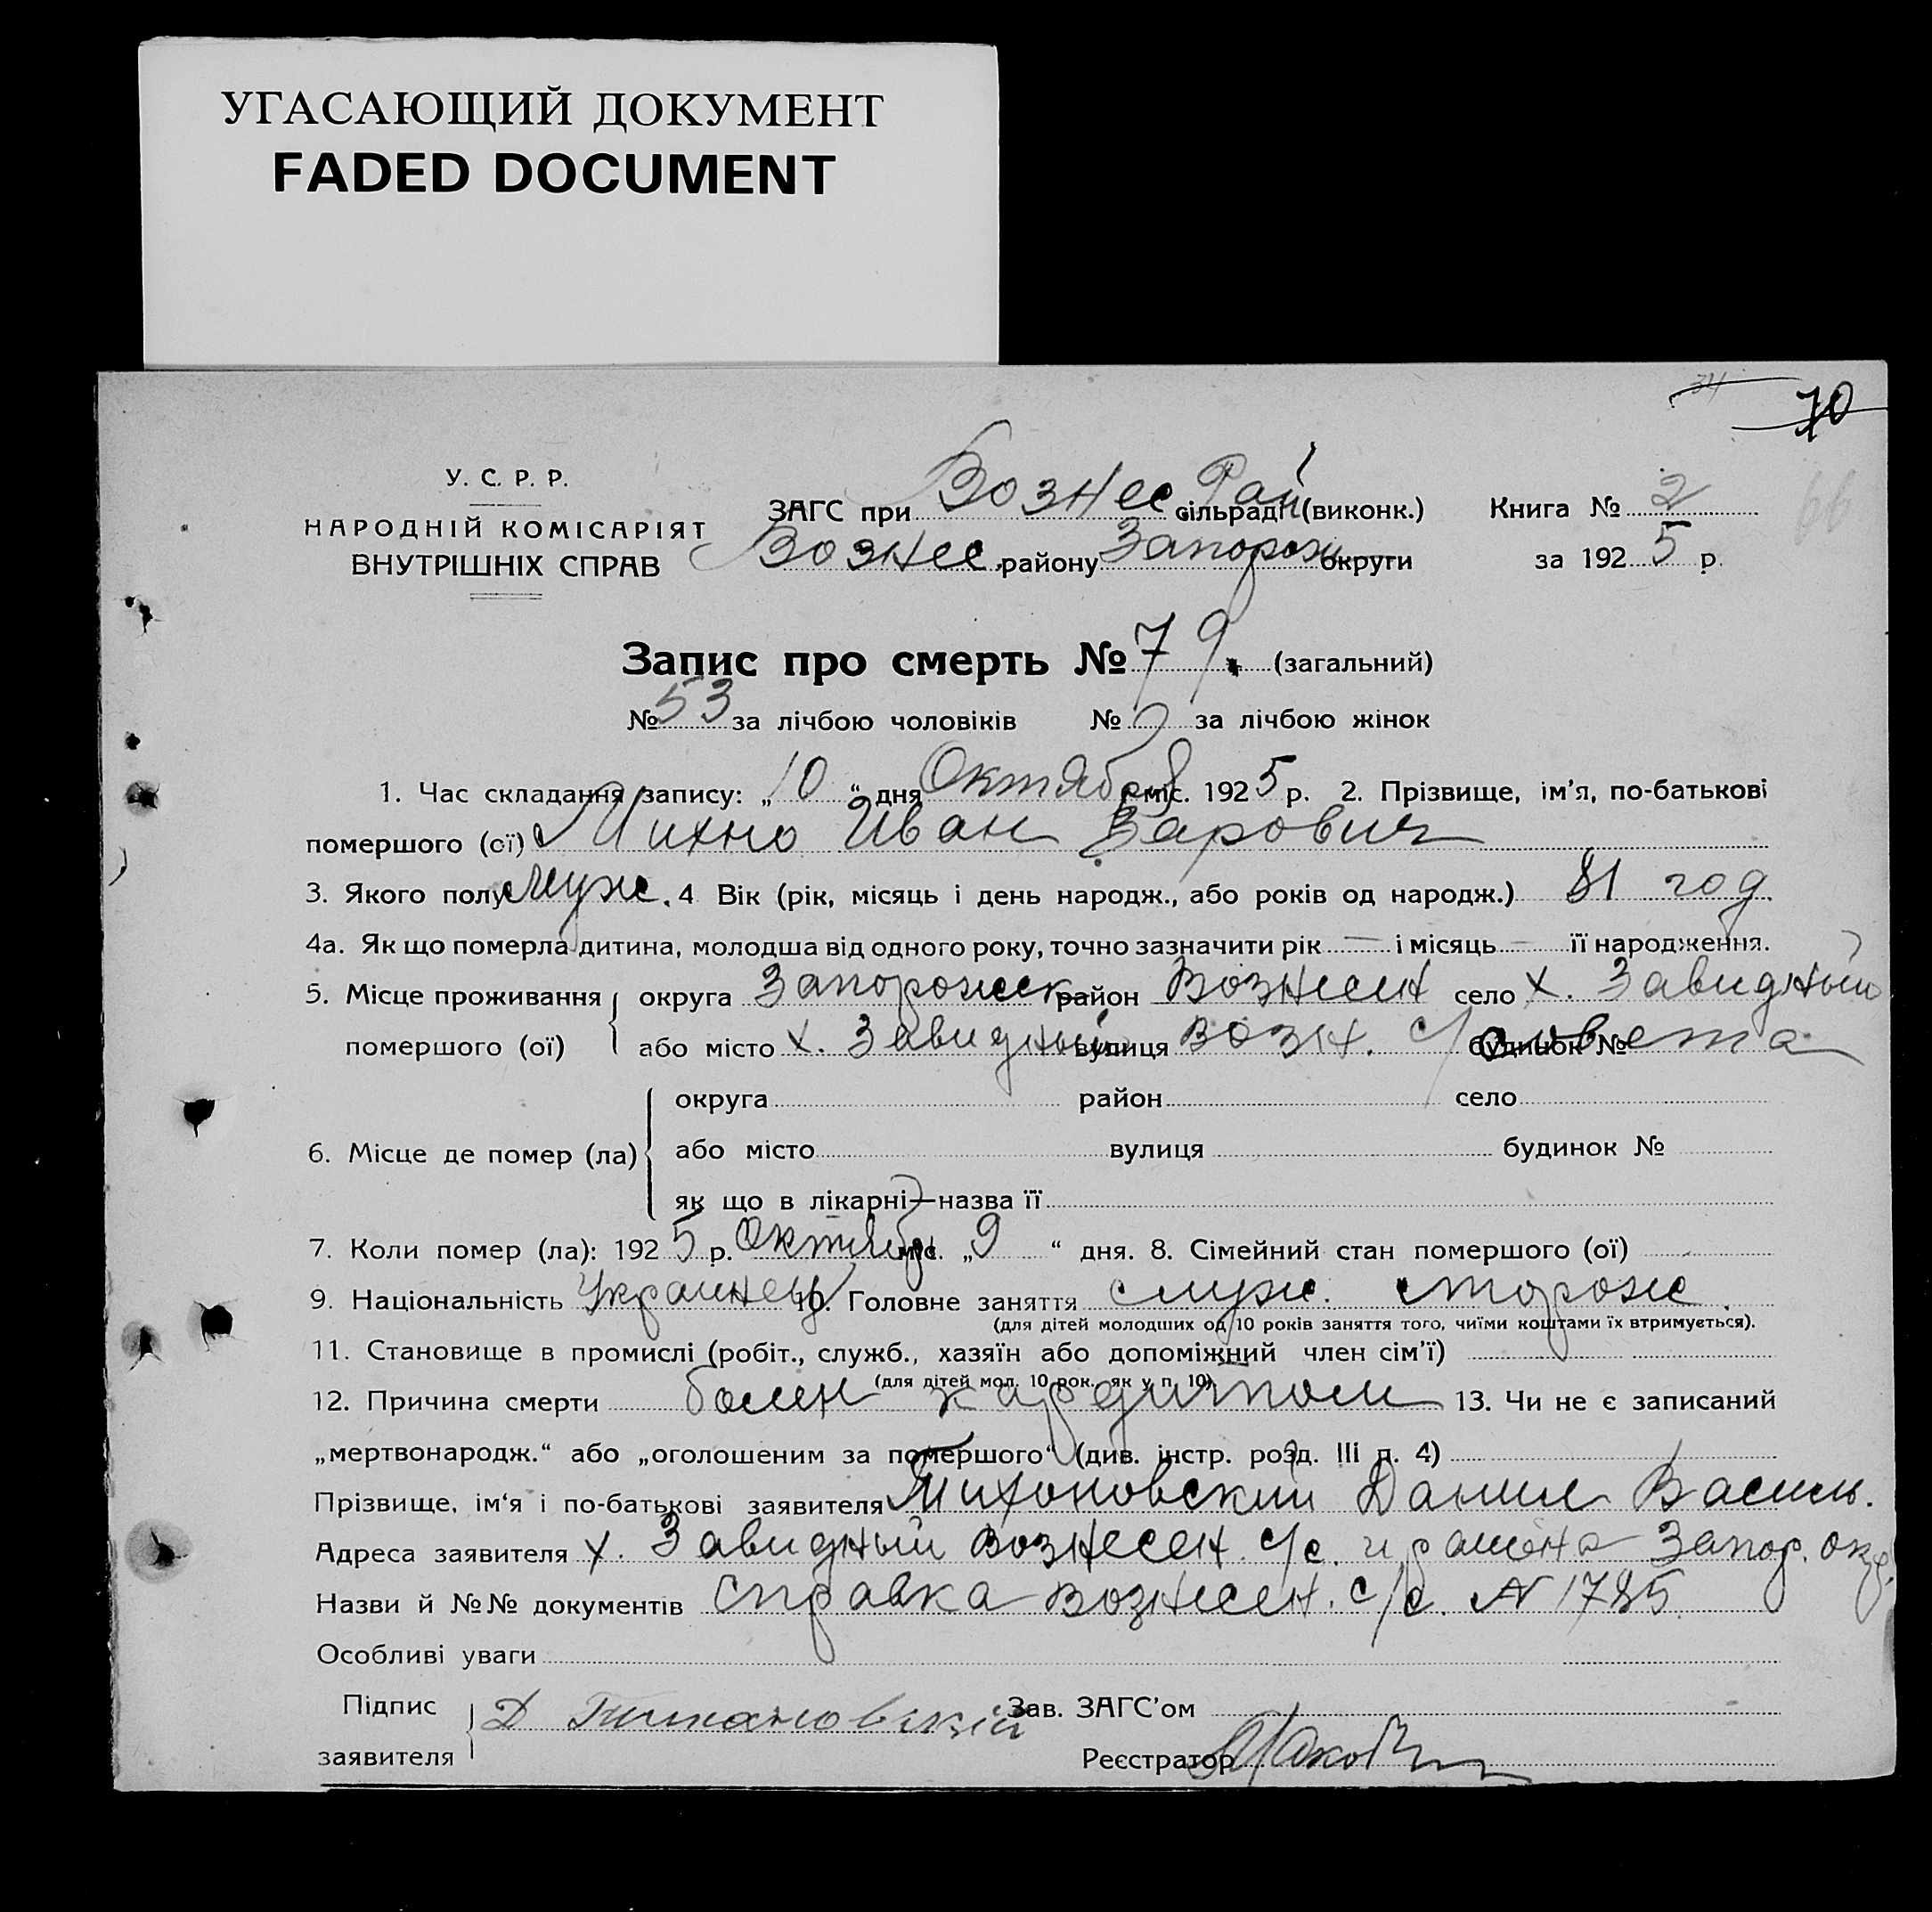 УГАСАЮЩИЙ ДОКУМЕНТ
FADED DOCUMENT
70
У. С. Р. Р.
НАРОДНІЙ КОМІСАРІЯТ
ВНУТРІШНІХ СПРАВ
ЗАГС при Вознес Рай сільраді (виконк.)
Вознес. району Запорож округи
Книга № 2
за 192 5 р.
Запис про смерть № 79. (загальний)
№ 53 за лічбою чоловіків № за лічбою жінок
1. Час складання запису: „10“ дня Октября міс. 192 5 р. 2. Прізвище, ім'я, по-батькові
помершого (ої) Михно Иван Зарович
3. Якого полу муж. 4 Вік (рік, місяць і день народж., або років од народж.) 81 год
4а. Як що померла дитина, молодша від одного року, точно зазначити рік — і місяць — її народження.
5. Місце проживання помершого (ої) округа Запорожск район Вознесен село х. Завидный
або місто х. Завидный вулиця Возн. с/совета будинок №
6. Місце де помер (ла) округа район село
або місто вулиця будинок №
як що в лікарні—назва її
7. Коли помер (ла): 192 5 р. Октябр міс. „9“ дня. 8. Сімейний стан помершого (ої)
9. Національність Украинец 10. Головне заняття служ. сторож.
(для дітей молодших од 10 років заняття того, чиїми коштами їх втримується).
11. Становище в промислі (робіт., служб., хазяїн або допоміжний член сім'ї)
(для дітей мол. 10 рок. як у п. 10).
12. Причина смерти болен 13. Чи не є записаний
„мертвонародж.“ або „оголошеним за помершого“ (див. інстр. розд. III п. 4)
Прізвище, ім'я і по-батькові заявителя Данил Василь.
Адреса заявителя х. Завидный Вознесен. с/с. и района Запор. окр.
Назви й №№ документів справка Вознесен. с/с. N 1785
Особливі уваги
Підпис заявителя Д
Зав. ЗАГС'ом
Реєстратор